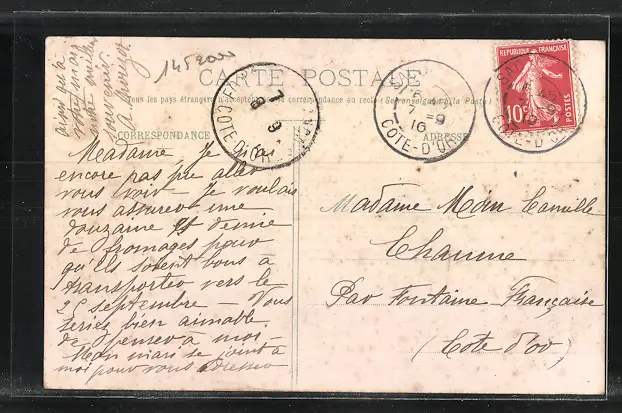 145200
CARTE POSTALE
Tous les pays étrangers n'acceptent pas la correspondance au recto (Se renseigner à la Poste)
CORRESPONDANCE
ADRESSE
Madame, Je n'ai
encore pas pu aller
vous voir. Je voulais
vous assurer une
douzaine et demie
de fromages pour
qu'ils soient bons à
transporter vers le
25 septembre — Vous
seriez bien aimable
de penser à moi
Mon mari se joint à
moi pour vous adresser
ainsi qu'à
votre mari
notre meilleur
souvenir.
Madame
Camille
Chaume
Par Fontaine Française
(Côte d'or)
7 9
COTE-D'OR
16
COTE-D'OR
REPUBLIQUE FRANÇAISE
10c
POSTES
COTE-D'OR